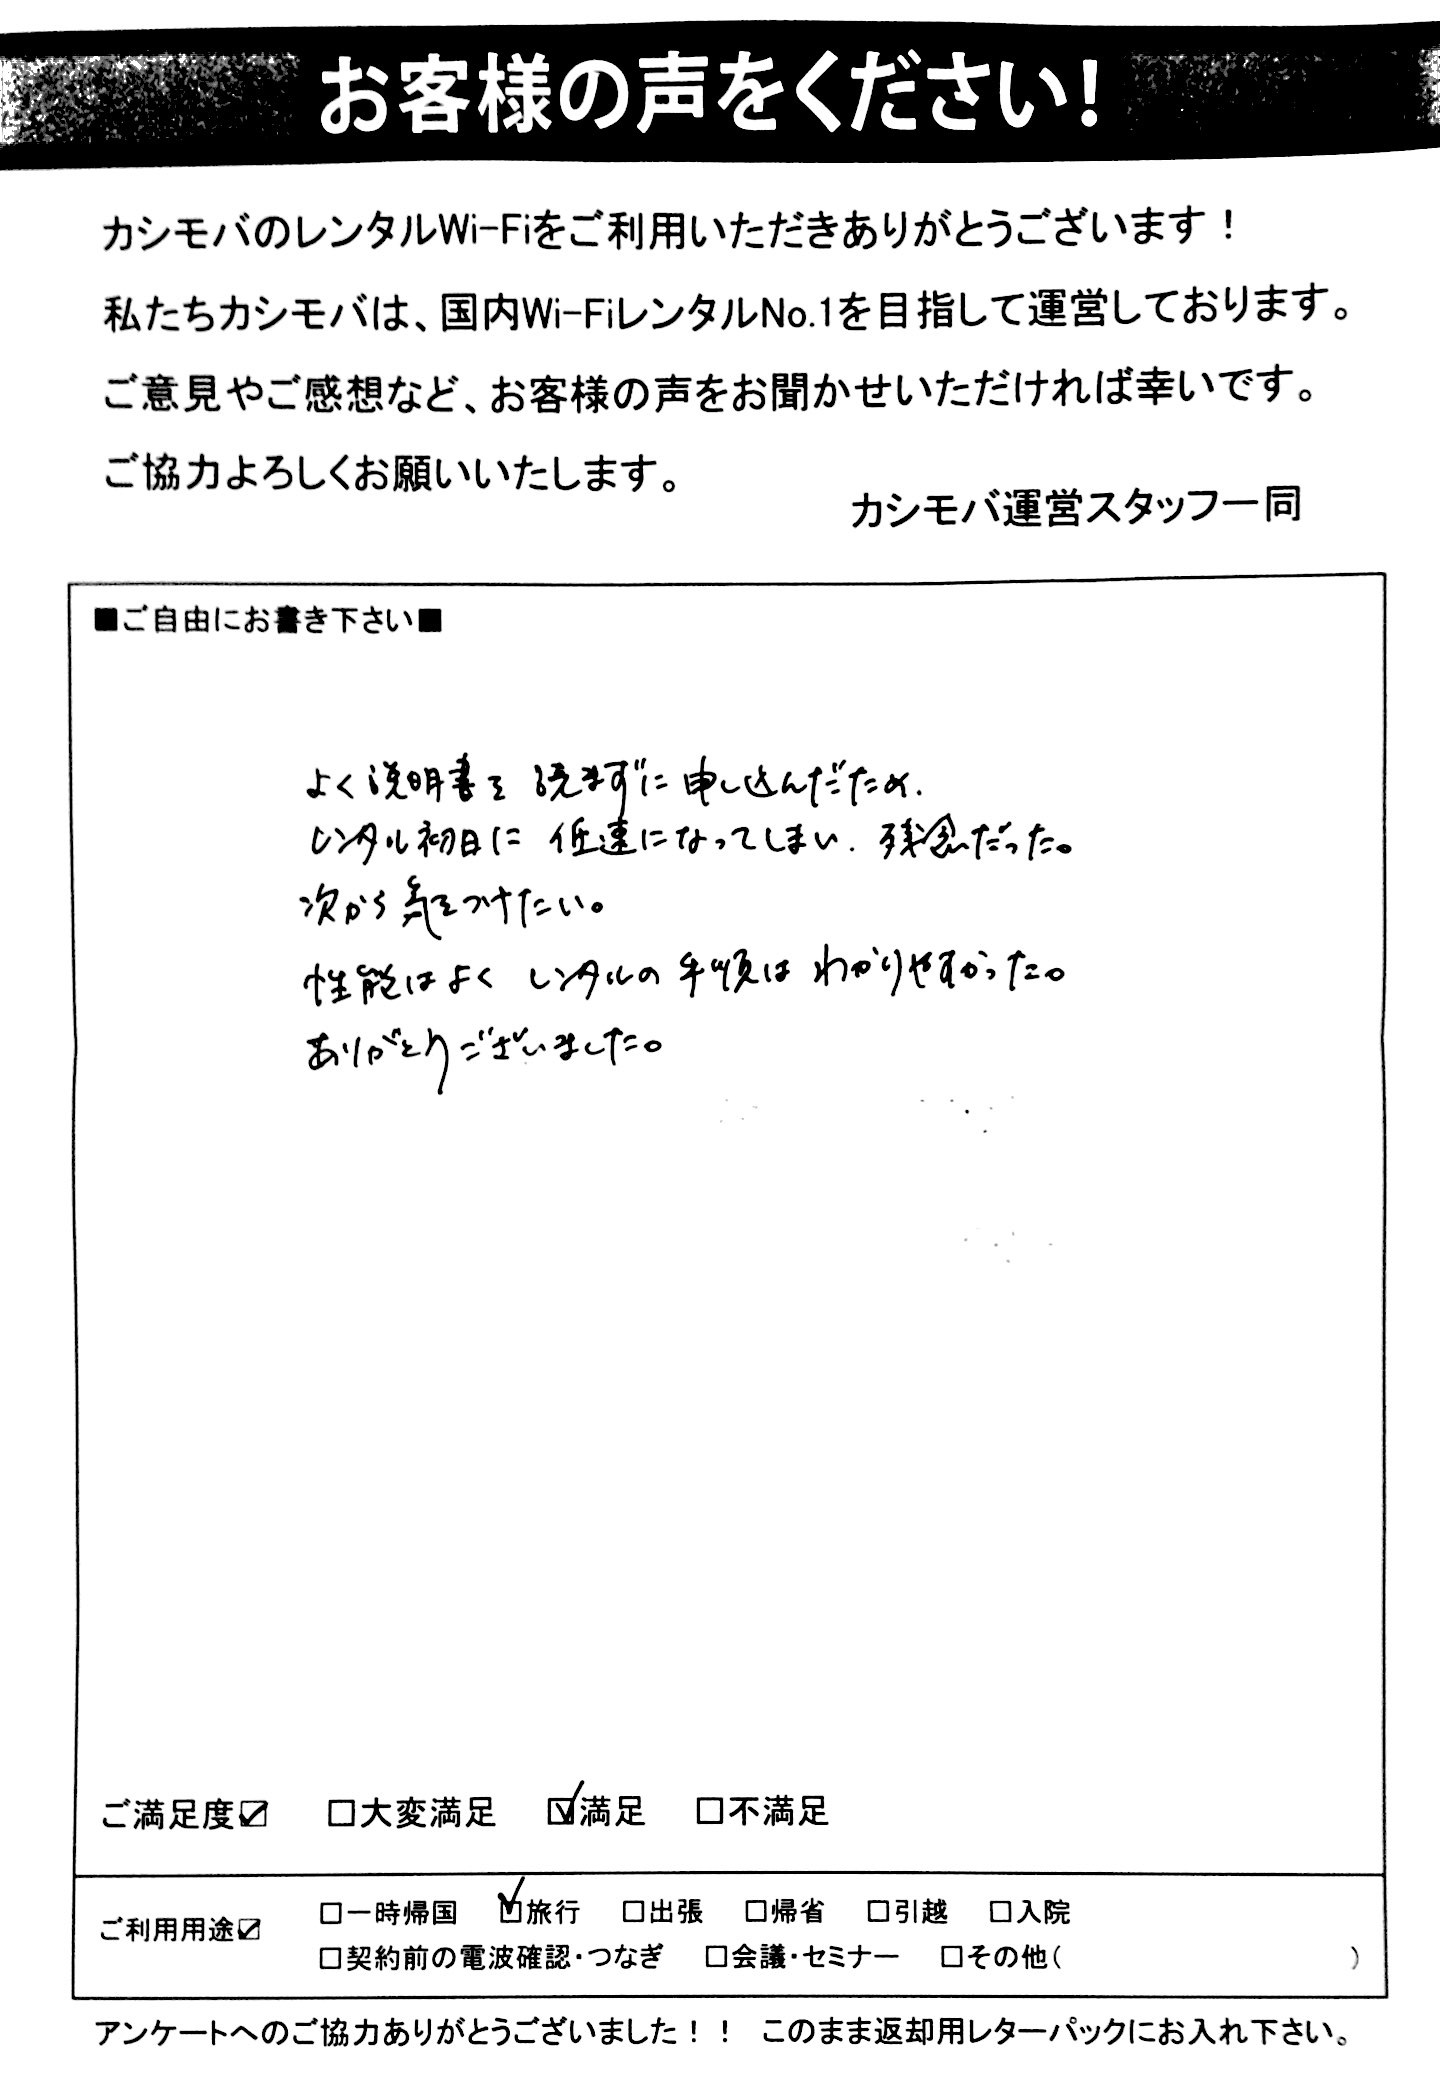 お客様の声をください!
カシモバのレンタルWi-Fiをご利用いただきありがとうございます！
私たちカシモバは、国内Wi-FiレンタルNo.1を目指して運営しております。
ご意見やご感想など、お客様の声をお聞かせいただければ幸いです。
ご協力よろしくお願いいたします。
カシモバ運営スタッフ一同
■ご自由にお書き下さい■
よく説明書を読まずに申し込んだため、
レンタル初日に低速になってしまい、残念だった。
次から気をつけたい。
性能はよくレンタルの手順はわかりやすかった。
ありがとうございました。
ご満足度☑ □大変満足 ☑満足 □不満足
ご利用用途☑ □一時帰国 ☑旅行 □出張 □帰省 □引越 □入院
□契約前の電波確認・つなぎ □会議・セミナー □その他( )
アンケートへのご協力ありがとうございました！！ このまま返却用レターパックにお入れ下さい。